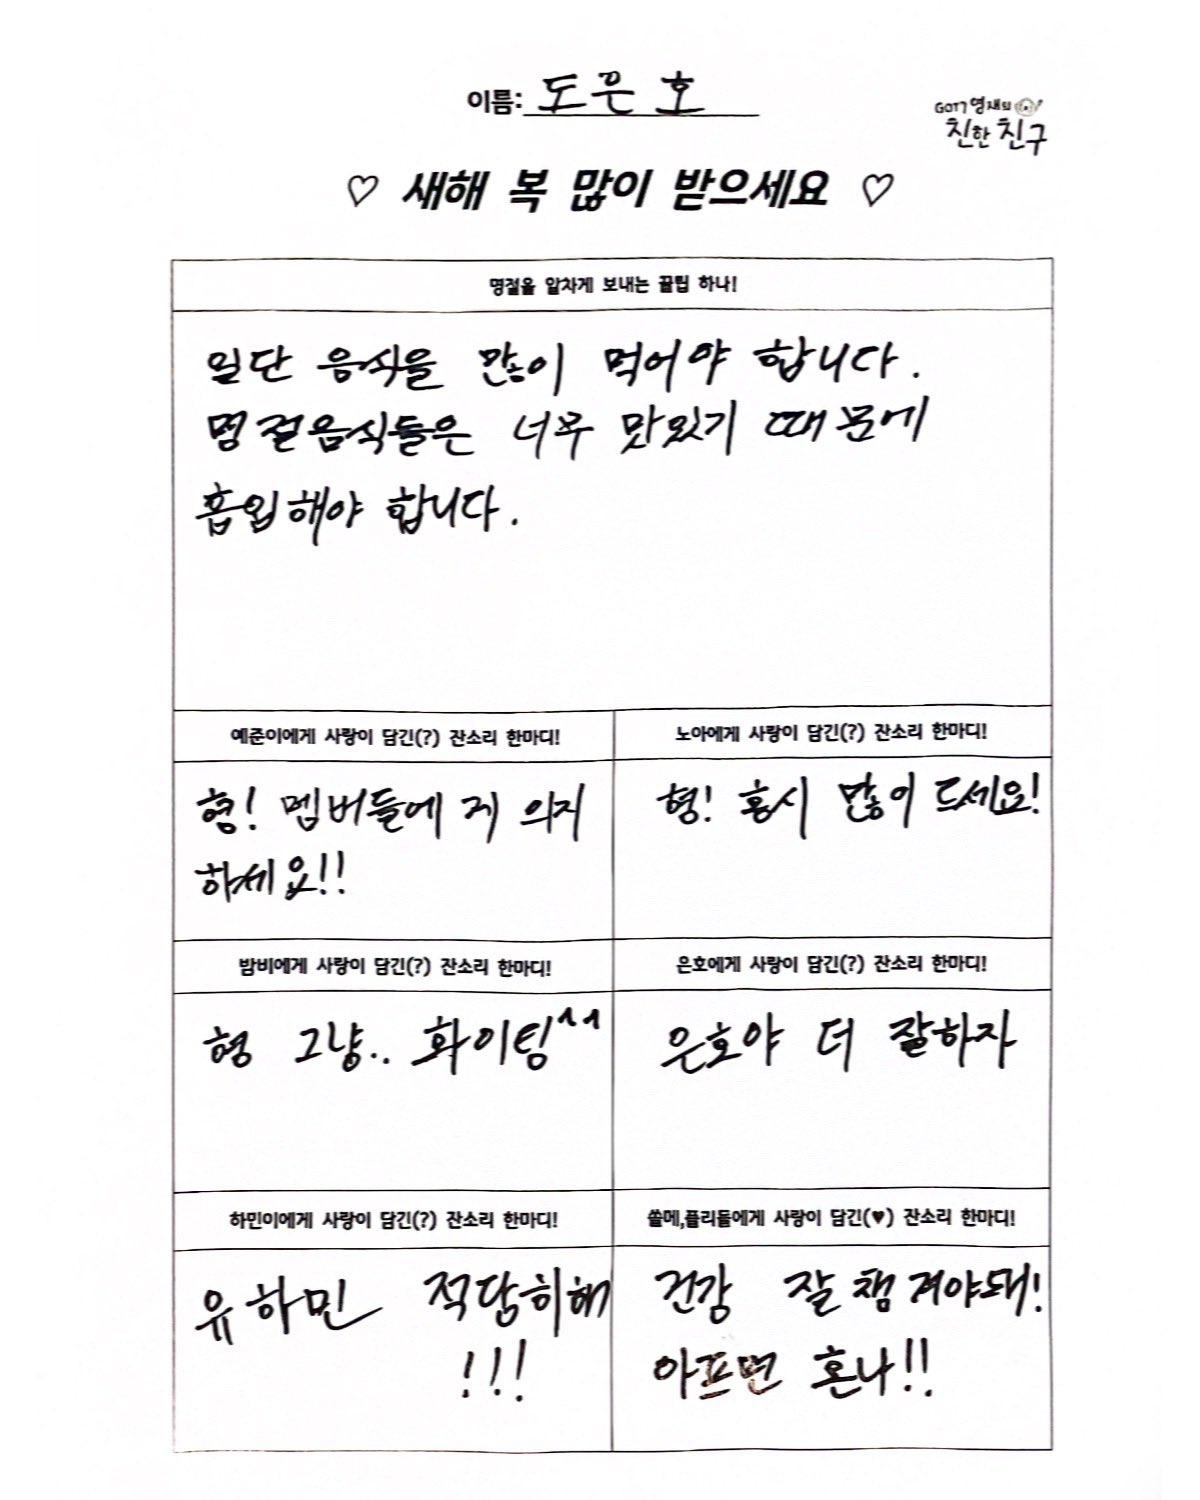 이름: 도은호
GOT7 영재의
친한친구
♡ 새해 복 많이 받으세요 ♡
명절을 알차게 보내는 꿀팁 하나!
일단 음식을 많이 먹어야 합니다.
명절음식들은 너무 맛있기 때문에
흡입해야 합니다.
예준이에게 사랑이 담긴(?) 잔소리 한마디!
형! 멤버들에게 의지
하세요!!
노아에게 사랑이 담긴(?) 잔소리 한마디!
형! 홍시 많이 드세요!
밤비에게 사랑이 담긴(?) 잔소리 한마디!
형 그냥.. 화이팅^^
은호에게 사랑이 담긴(?) 잔소리 한마디!
은호야 더 잘하자
하민이에게 사랑이 담긴(?) 잔소리 한마디!
유하민 적당히해
!!!
쏠메,플리들에게 사랑이 담긴(♥) 잔소리 한마디!
건강 잘 챙겨야돼!
아프면 혼나!!